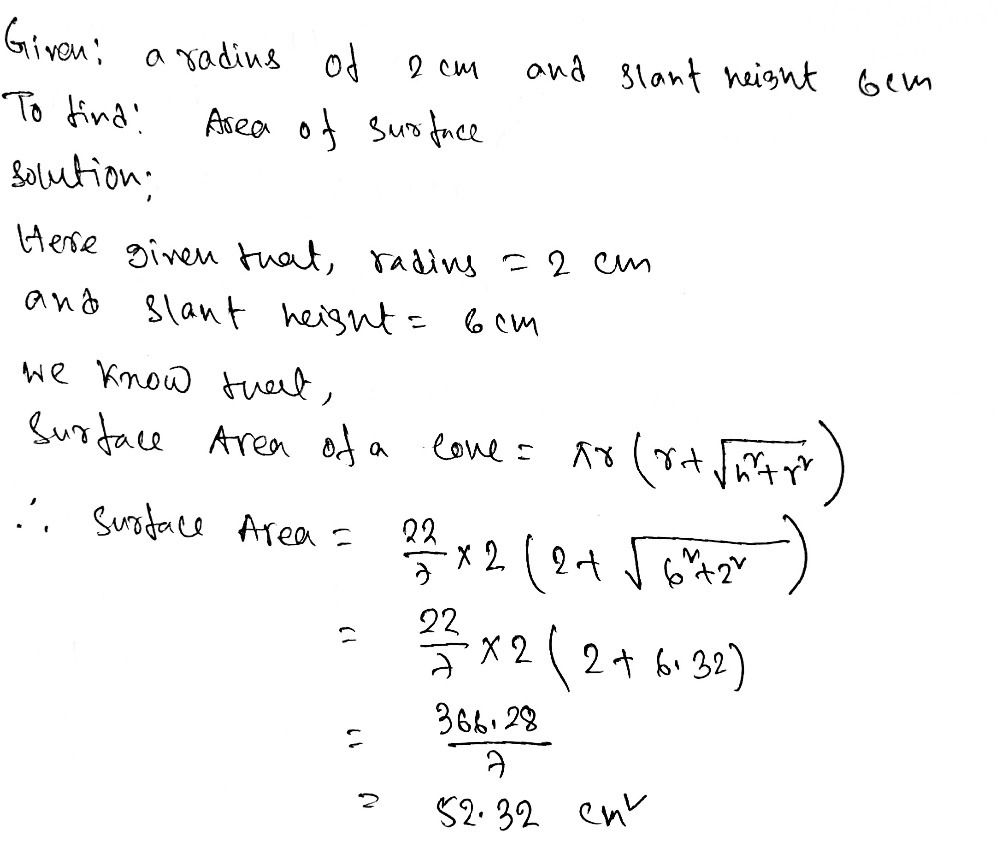 Given: a radius of 2 cm and slant height 6cm
To find: Area of surface
solution:
Here given that, radius = 2 cm
and slant height = 6 cm
we know that,
Surface Area of a cone = πr (r + √(h²+r²))
∴ Surface Area = 22/7 × 2 (2 + √(6²+2²))
= 22/7 × 2 (2 + 6.32)
= 366.28/7
= 52.32 cm²